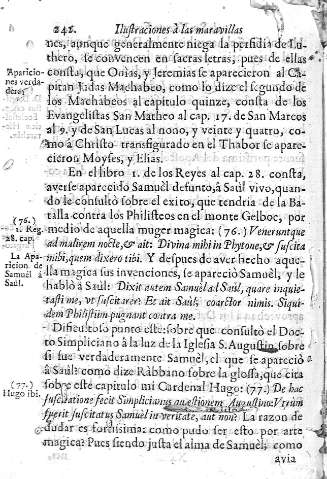 242. Ilustraciones à las maravillas
nes, aunque generalmente niega la perfidia de Lu-
thero, se convencen en sacras letras, pues de ellas
consta, que Onias, y Jeremias se aparecieron al Ca-
pitan Judas Machabeo, como lo dize el segundo de
los Machabeos al capitulo quinze, consta de los
Evangelistas San Matheo al cap. 17. de San Marcos
al 9. y de San Lucas al nono, y veinte y quatro, co-
mo à Christo transfigurado en el Thabor se apare-
cieron Moyses, y Elias.
Aparicio-
nes verda-
deras.
En el libro 1. de los Reyes al cap. 28. consta,
averse aparecido Samuel defunto, à Saùl vivo, quan-
do le consultò sobre el exito, que tendria de la Ba-
talla contra los Philisteos en el monte Gelboe, por
medio de aquella muger magica: (76.) Veneruntque
ad mulierem nocte, & ait: Divina mihi in Phytone, & suscita
mihi, quem dixero tibi. Y despues de aver hecho aque-
lla magica sus invenciones, se apareciò Samoèl, y le
hablò à Saùl: Dixit autem Samuel ad Saùl, quare inquie-
tasti me, ut suscitarer? Et ait Saùl, coarctor nimis. Siqui-
dem Philistiim pugnant contra me.
(76.)
1. Reg.
28. cap.
La Apa-
ricion de
Samuèl à
Saùl.
Dificultoso punto este: sobre que consultò el Doc-
to Simpliciano à la luz de la Iglesia S. Augustin, sobre
si fue verdaderamente Samuel, el que se apareciò
à Saùl: como dize Ràbbano sobre la glossa, que cita
sobre este capitulo mi Cardenal Hugo: (77.) De hac
suscitatione fecit Simplicianus quæstionem Augustino: Utrum
fuerit suscitatus Samuel in veritate, aut non: La razon de
dudar es fortissima: como pudo ser esto por arte
magica? Pues siendo justa el alma de Samuel, como
(77.)
Hugo ibi.
avia